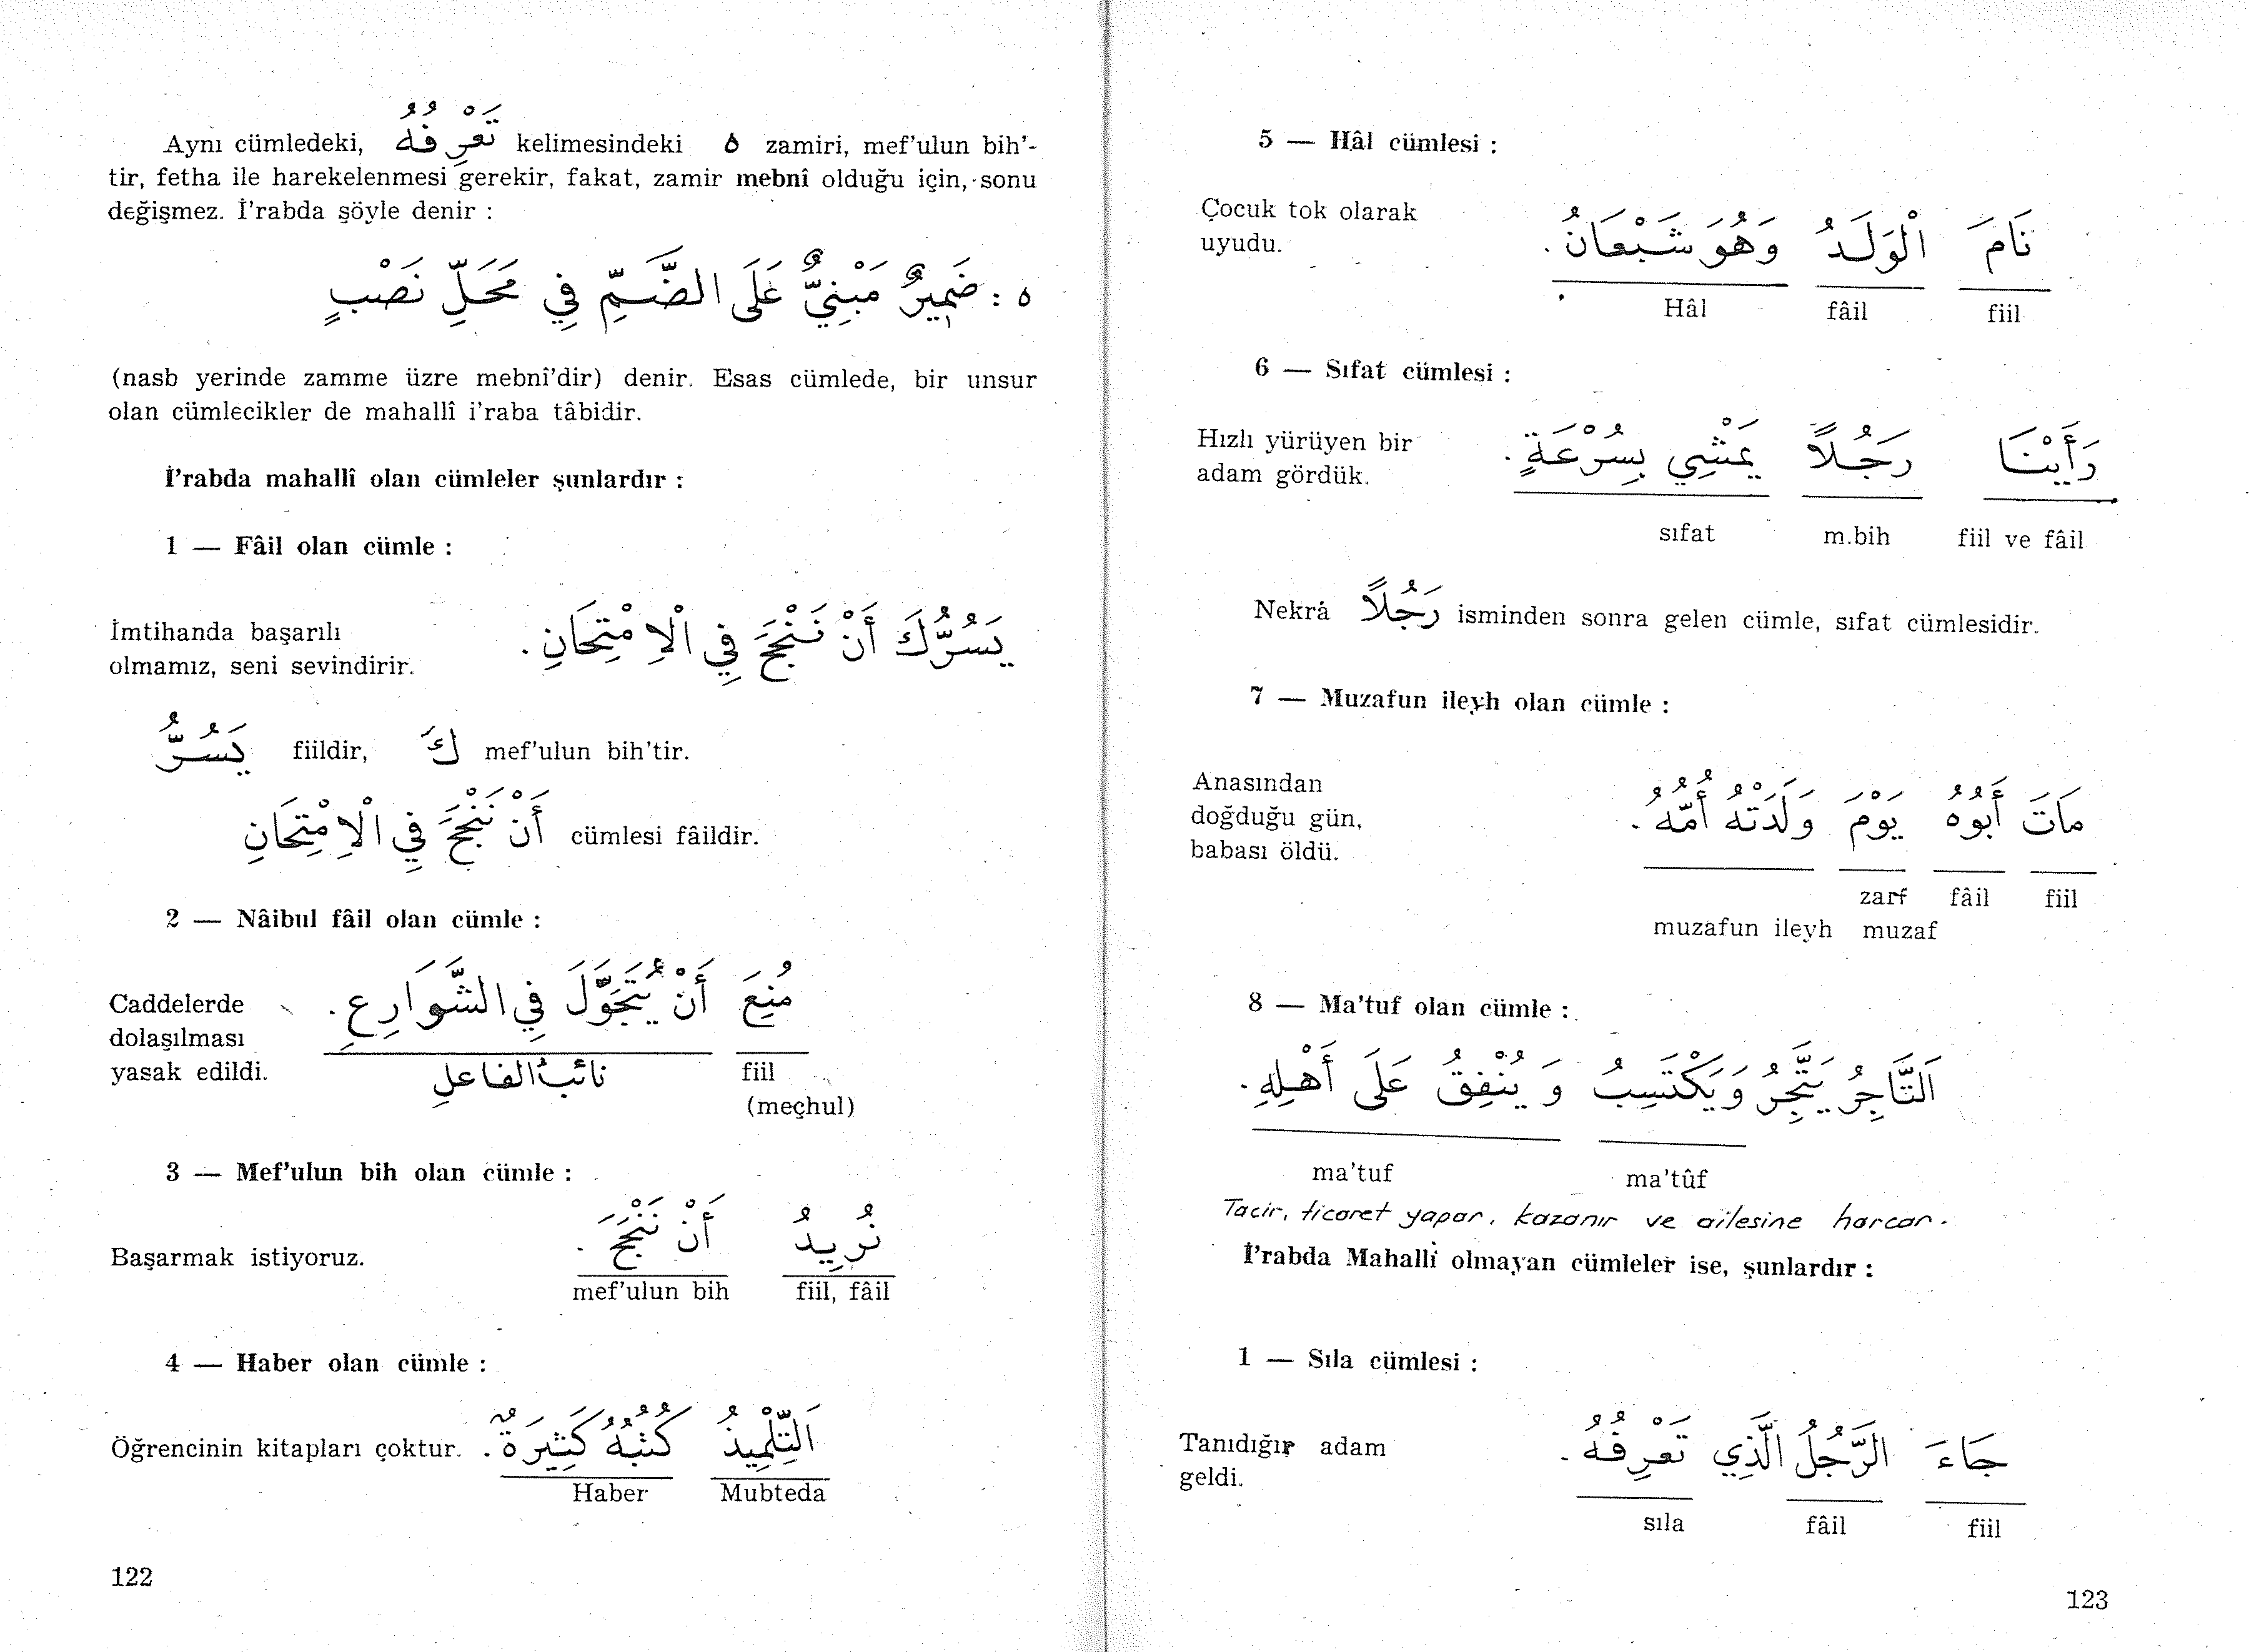 Aynı cümledeki, تَعْرِفُهُ kelimesindeki ه zamiri, mef'ulun bih'-
tir, fetha ile harekelenmesi gerekir, fakat, zamir mebnî olduğu için, sonu
değişmez. İ'rabda şöyle denir :
ه : ضَمِيرٌ مَبْنِيٌّ عَلَى الضَّمِّ فِي مَحَلِّ نَصْبٍ
(nasb yerinde zamme üzre mebnî'dir) denir. Esas cümlede, bir unsur
olan cümlecikler de mahallî i'raba tâbidir.
İ'rabda mahallî olan cümleler şunlardır :
1 — Fâil olan cümle :
İmtihanda başarılı
olmamız, seni sevindirir.
يَسُرُّكَ أَنْ نَنْجَحَ فِي الْاِمْتِحَانِ .
يَسُرُّ fiildir, كَ mef'ulun bih'tir.
أَنْ نَنْجَحَ فِي الْاِمْتِحَانِ cümlesi fâildir.
2 — Nâibul fâil olan cümle :
Caddelerde
dolaşılması
yasak edildi.
مُنِعَ أَنْ يُتَجَوَّلَ فِي الشَّوَارِعِ .
نائبُ الفاعلِ fiil
(meçhul)
3 — Mef'ulun bih olan cümle :
Başarmak istiyoruz. نُرِيدُ أَنْ نَنْجَحَ .
mef'ulun bih fiil, fâil
4 — Haber olan cümle :
Öğrencinin kitapları çoktur. اَلتِّلْمِيذُ كُتُبُهُ كَثِيرَةٌ .
Haber Mubteda
122
5 — Hâl cümlesi :
Çocuk tok olarak
uyudu.
نَامَ الْوَلَدُ وَهُوَ شَبْعَانُ .
Hâl fâil fiil
6 — Sıfat cümlesi :
Hızlı yürüyen bir
adam gördük.
رَأَيْنَا رَجُلاً يَمْشِي بِسُرْعَةٍ .
sıfat m.bih fiil ve fâil
Nekrâ رَجُلاً isminden sonra gelen cümle, sıfat cümlesidir.
7 — Muzafun ileyh olan cümle :
Anasından
doğduğu gün,
babası öldü.
مَاتَ أَبُوهُ يَوْمَ وَلَدَتْهُ أُمُّهُ .
zarf fâil fiil
muzafun ileyh muzaf
8 — Ma'tuf olan cümle :
اَلتَّاجِرُ يَتَّجِرُ وَيَكْتَسِبُ وَ يُنْفِقُ عَلَى أَهْلِهِ .
ma'tuf ma'tûf
Tacir, ticaret yapar, kazanır ve ailesine harcar.
İ'rabda Mahalli olmayan cümleler ise, şunlardır :
1 — Sıla cümlesi :
Tanıdığıp adam
geldi.
جَاءَ الرَّجُلُ الَّذِي تَعْرِفُهُ .
sıla fâil fiil
123